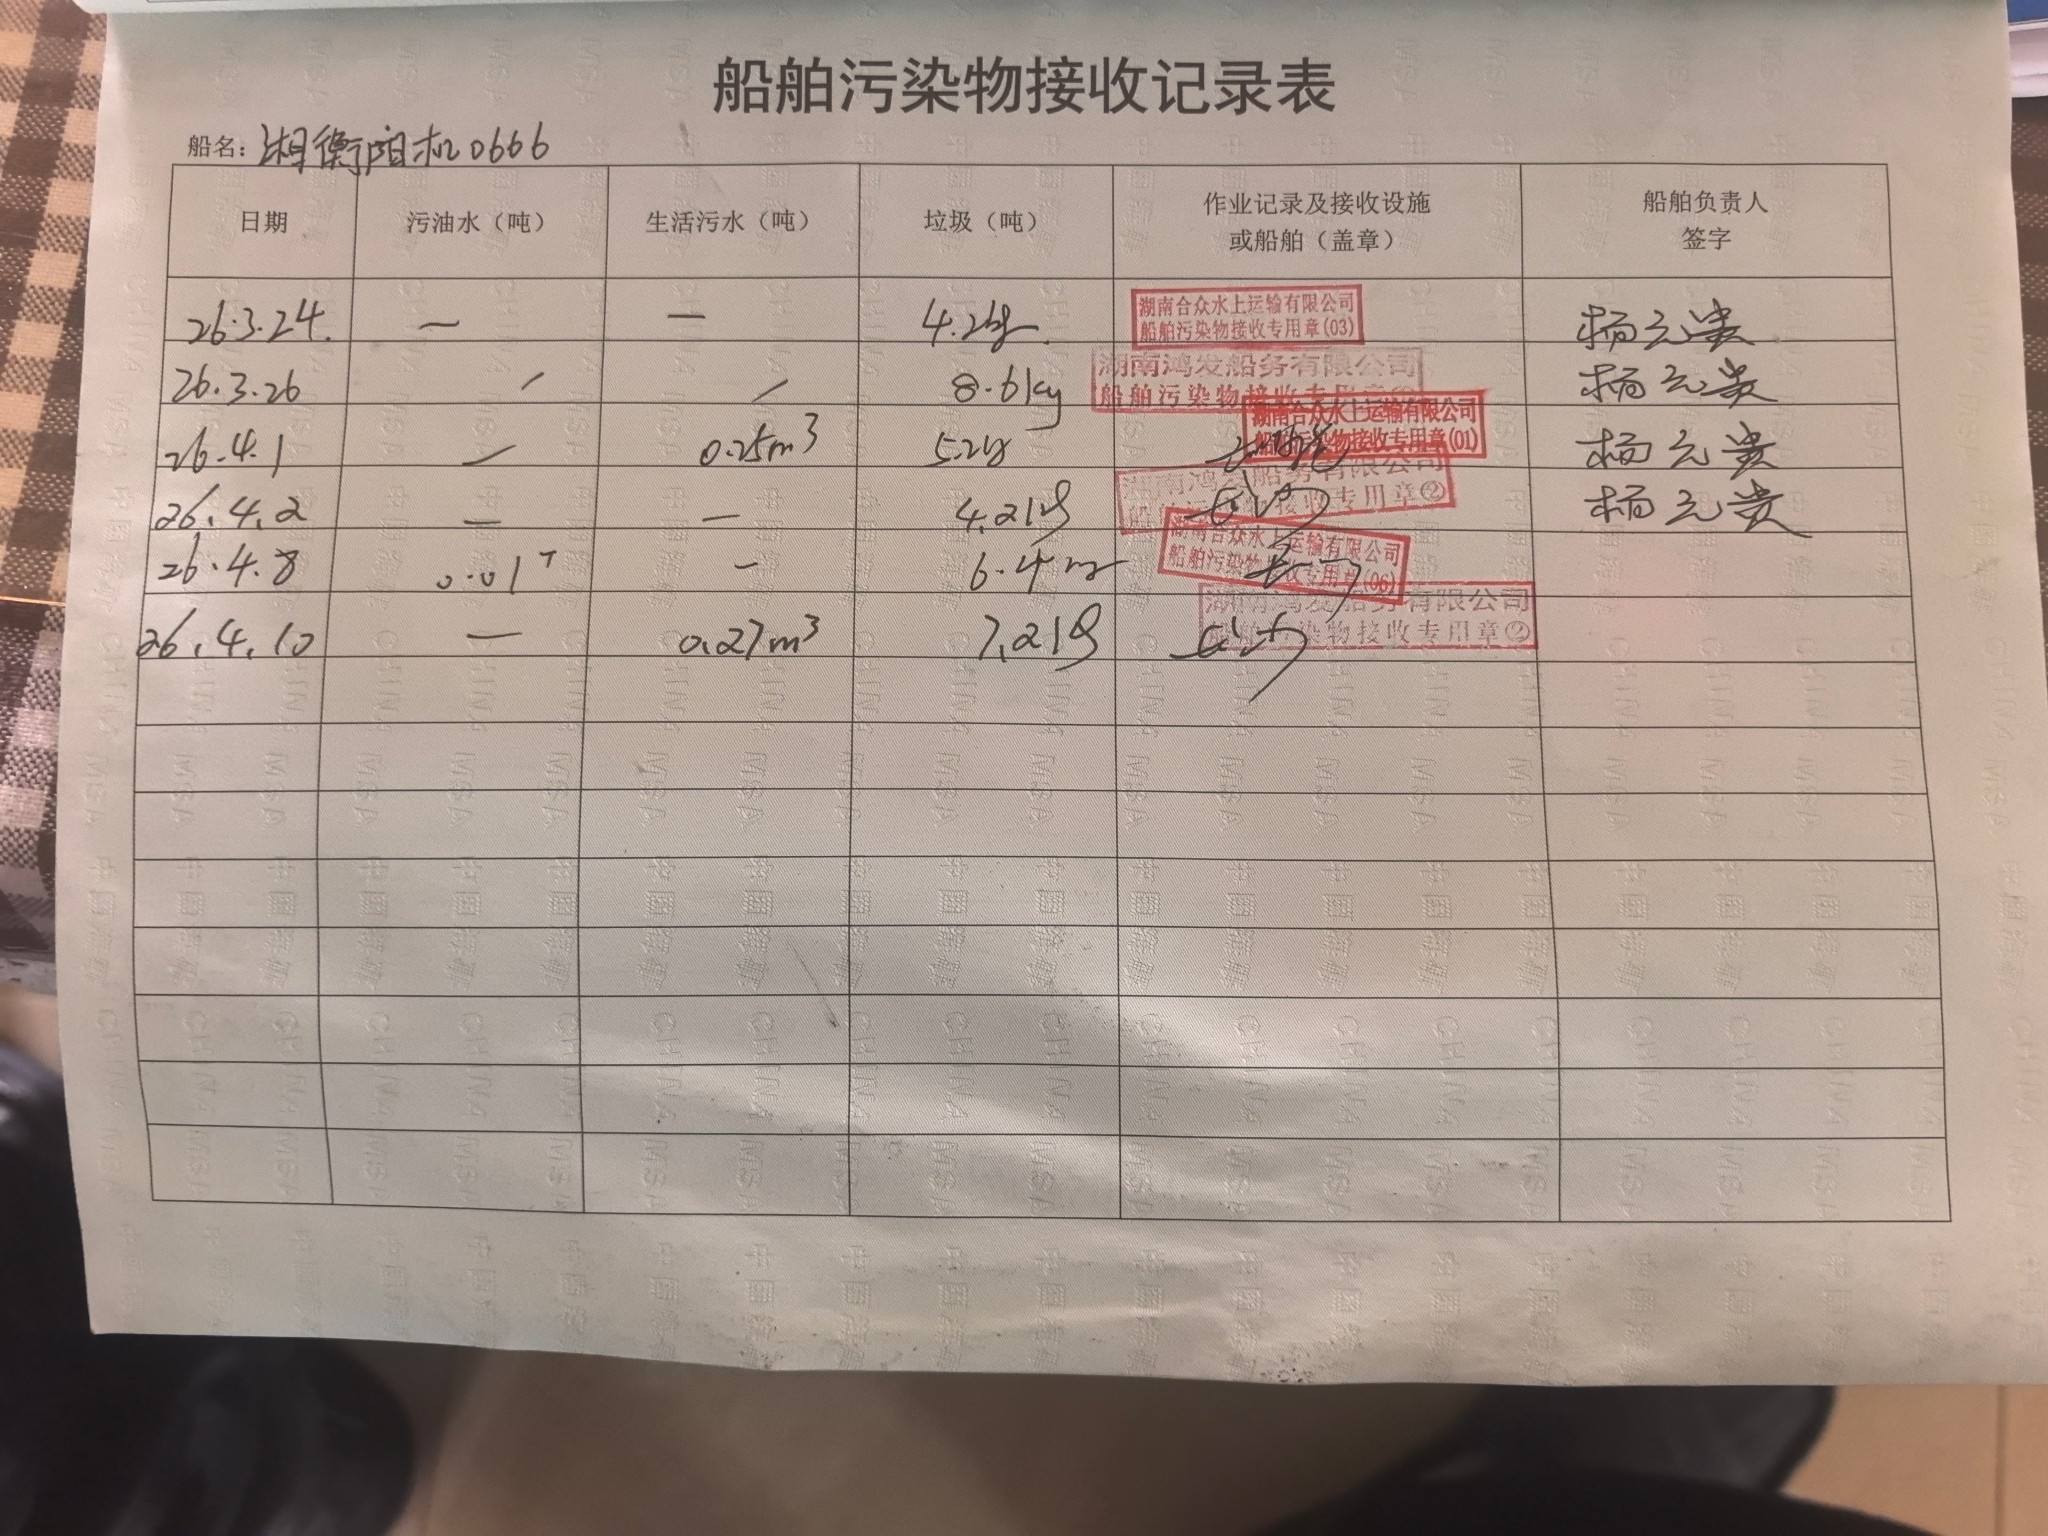 船舶污染物接收记录表
船名：湘衡阳机0666
日期 污油水（吨） 生活污水（吨） 垃圾（吨） 作业记录及接收设施或船舶（盖章） 船舶负责人签字
26.3.24. — — 4.2kg 湖南合众水上运输有限公司 船舶污染物接收专用章(03) 杨元贵
26.3.26 / / 8.6kg 湖南鸿发船务有限公司 船舶污染物接收专用章② 杨元贵
26.4.1 — 0.25m³ 5.2kg 湖南合众水上运输有限公司 船舶污染物接收专用章(01) 杨元贵
26.4.2 — — 4.2kg 湖南鸿发船务有限公司 船舶污染物接收专用章② 长沙 杨元贵
26.4.8 0.01T — 6.4kg 湖南合众水上运输有限公司 船舶污染物接收专用章(06)
26.4.10 — 0.27m³ 7.2kg 湖南鸿发船务有限公司 船舶污染物接收专用章② 长沙
中国海事 CHINA MSA